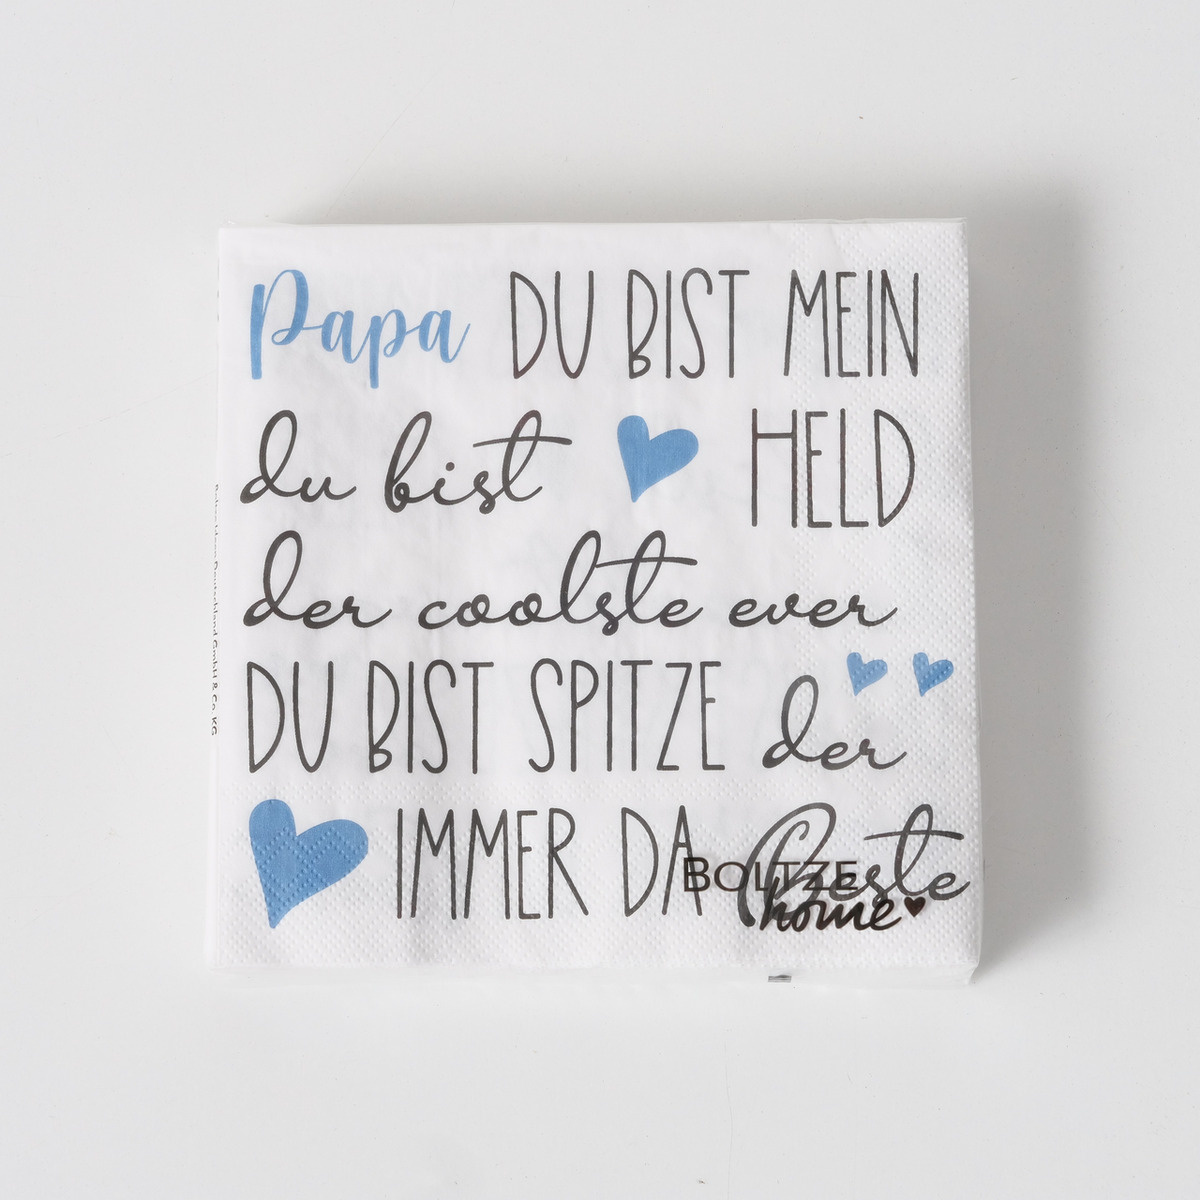 Papa DU BIST MEIN
du bist HELD
der coolste ever
DU BIST SPITZE der
IMMER DA Beste
BOLTZE
home
Deutschland GmbH & Co. KG